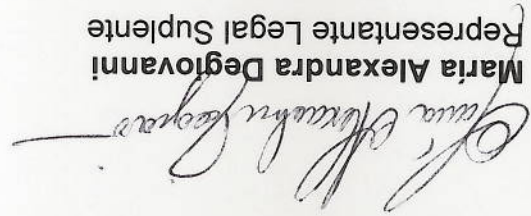 María Alexandra Degiovanni
Representante Legal Suplente